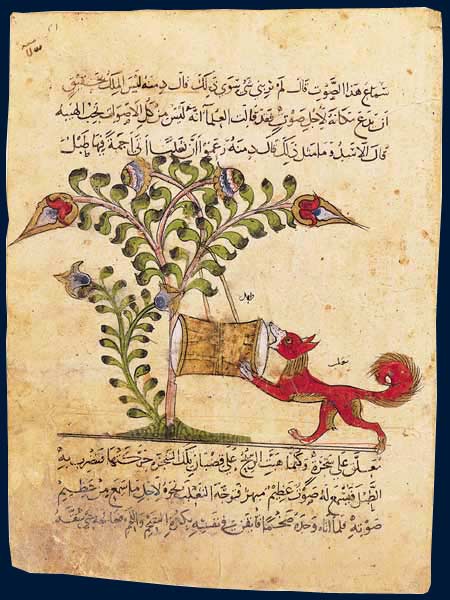 سماع هذا الصوت قال لم يربني شي سوى ذلك قال دمنه ليس الملك بحقيق
أن يدع مكانه لأجل صوت فقد قالت العلما أنه ليس من كل الأصوات تجب الهيبه
قال الأسد وما مثل ذلك قال دمنه زعموا أن ثعلبا أتى أجمة فيها طبل
طبل
ثعلب
معلق على شجرة وكلما هبت الريح على قضبان تلك الشجرة حركتها فتضرب به
الطبل فيسمع له صوت عظيم فتوجه الثعلب نحوه لأجل ما سمع من عظيم
صوته فلما أتاه وجده ضخما فأيقن في نفسه بكثرة الشحم واللحم فعالجه حتى شقه